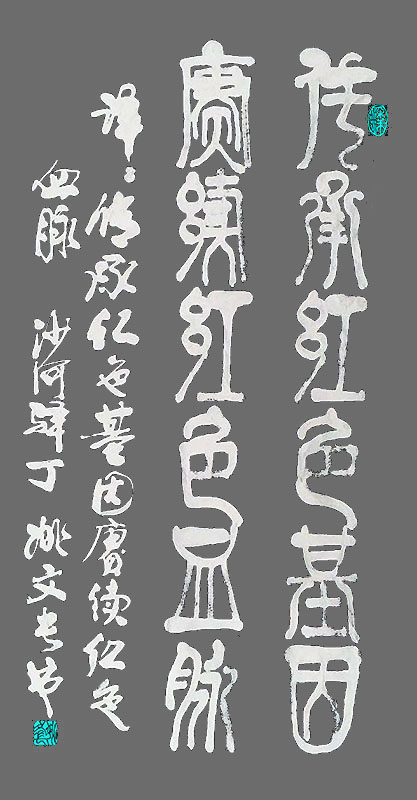 传承红色基因
赓续红色血脉
释：传承红色基因赓续红色
血脉 沙河驿丁 姚文长书